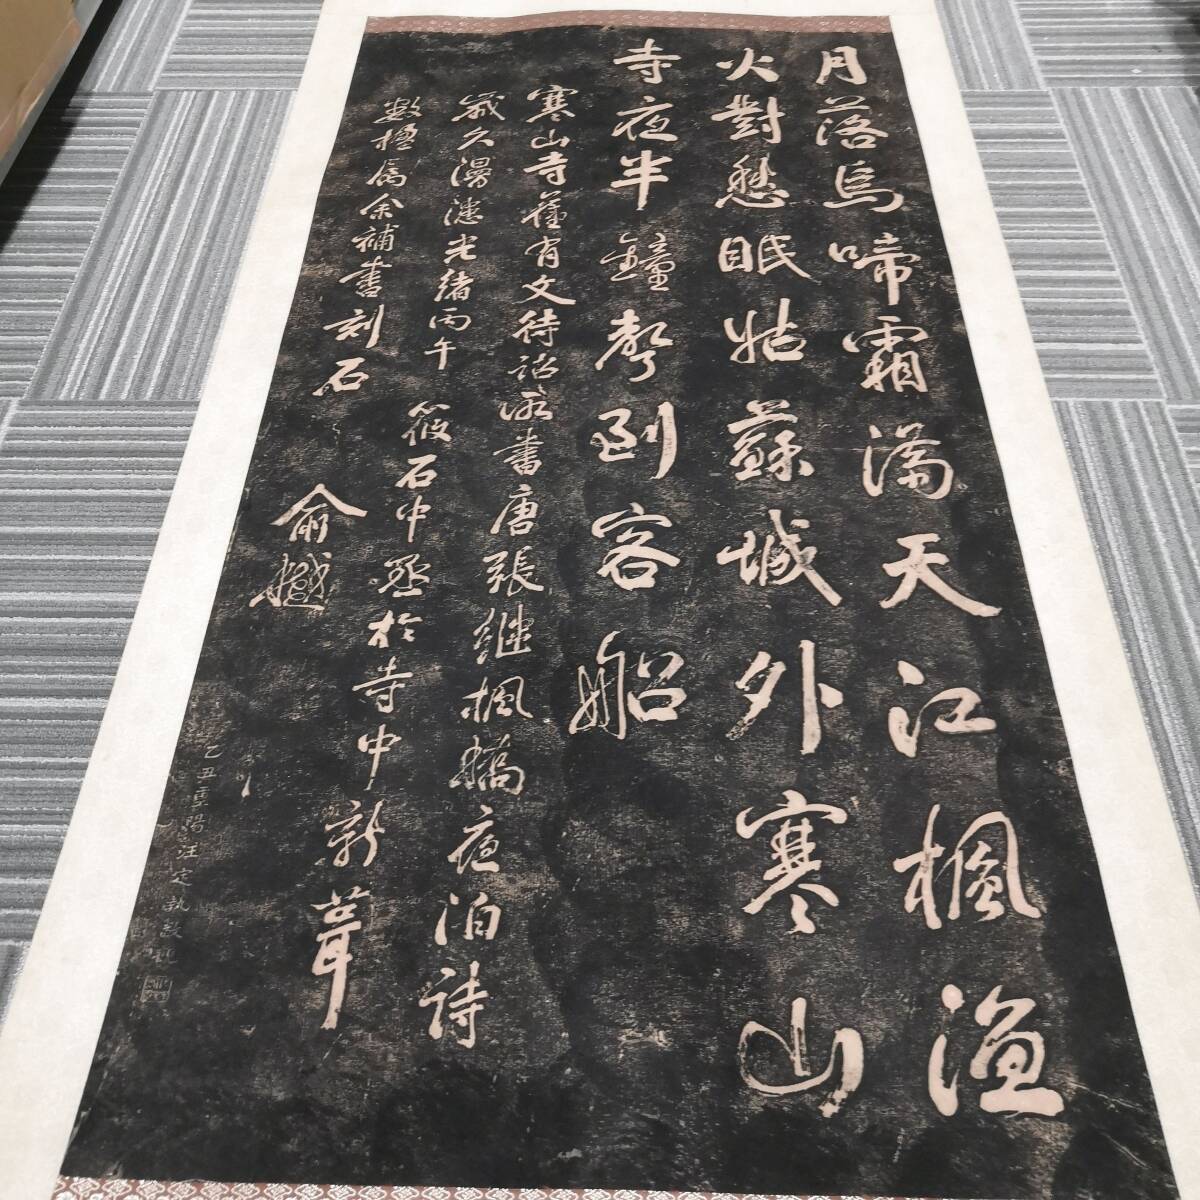 月落烏啼霜满天江楓漁
火對愁眠姑蘇城外寒山
寺夜半鐘聲到客船
寒山寺舊有文待詔所書唐張继楓橋夜泊詩
歲久漫漶光緒丙午筱石中丞於寺中新葺
數楹属余補書刻石
俞樾
乙丑重陽汪定執敬觀